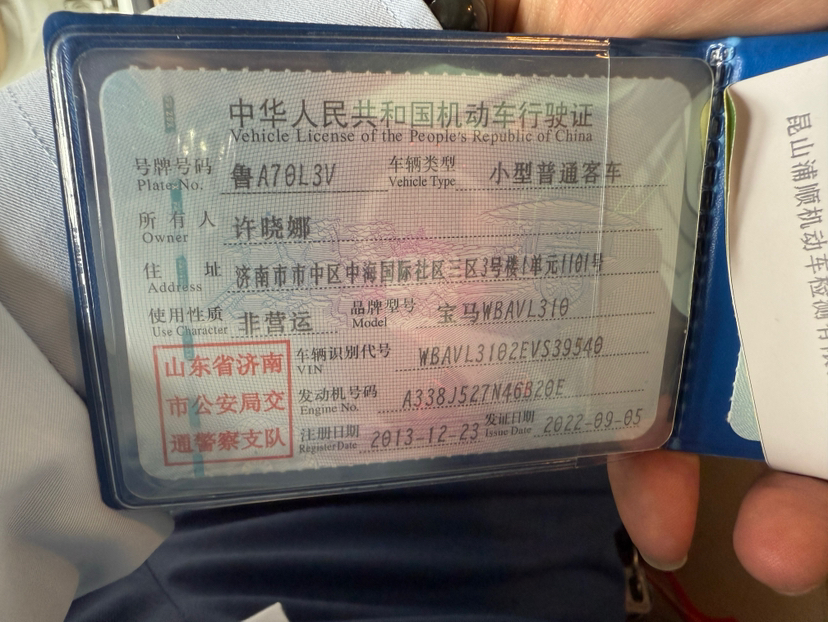 中华人民共和国机动车行驶证
Vehicle License of the People's Republic of China
号牌号码 鲁A70L3V 车辆类型 小型普通客车
Plate No. Vehicle Type
所有人 许晓娜
Owner
住址 济南市市中区中海国际社区三区3号楼1单元1101号
Address
使用性质 非营运 品牌型号 宝马WBAVL310
Use Character Model
山东省济南
市公安局交
通警察支队
车辆识别代号 WBAVL3102EVS39540
VIN
发动机号码 A338J527N46B20E
Engine No.
注册日期 2013-12-23 发证日期 2022-09-05
Register Date Issue Date
昆山浦顺机动车检测有限